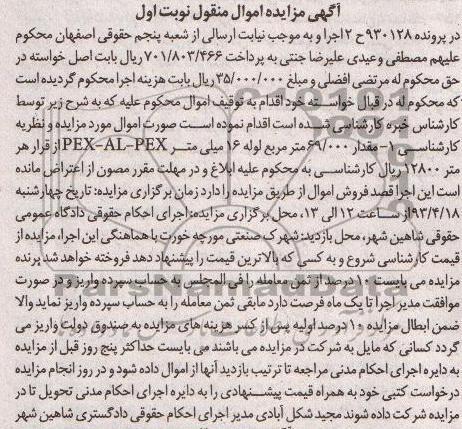 آگهی مزایده اموال منقول نوبت اول
در پرونده ۹۳۰۱۲۸ح ۲اجرا و به موجب نیابت ارسالی از شعبه پنجم حقوقی اصفهان محکوم
علیهم مصطفی وعیدی علیرضا جنتی به پرداخت ۷۰۱/۸۰۳/۴۶۶ ریال بابت اصل خواسته در
حق محکوم له مرتضی افضلی و مبلغ ۳۵/۰۰۰/۰۰۰ ریال بابت هزینه اجرا محکوم گردیده است
که محکوم له در قبال خواسته خود اقدام به توقیف اموال محکوم علیه که به شرح زیر توسط
کارشناس خبره کارشناسی شده است اقدام نموده است صورت اموال مورد مزایده و نظریه
کارشناسی ۱- مقدار ۶۹/۰۰۰ متر مربع لوله ۱۶ میلی متر PEX-AL-PEX از قرار هر
متر ۱۲۸۰۰ ریال کارشناسی به محکوم علیه ابلاغ و در مهلت مقرر مصون از اعتراض مانده
است این اجرا قصد فروش اموال از طریق مزایده را دارد زمان برگزاری مزایده: تاریخ چهارشنبه
۹۳/۴/۱۸از ساعت ۱۲ الی ۱۳، محل برگزاری مزایده: اجرای احکام حقوقی دادگاه عمومی
حقوقی شاهین شهر، محل بازدید: شهرک صنعتی مورچه خورت با هماهنگی این اجرا، مزایده از
قیمت کارشناسی شروع و به کسی که بالاترین قیمت را پیشنهاد دهد فروخته خواهد شد برنده
مزایده می بایست ۱۰درصد از ثمن معامله را فی المجلس به حساب سپرده واریز و در صورت
موافقت مدیر اجرا تا یک ماه فرصت دارد مابقی ثمن معامله را به حساب سپرده واریز نماید والا
ضمن ابطال مزایده ۱۰ درصد اولیه پس از کسر هزینه های مزایده به صندوق دولت واریز می
گردد کسانی که مایل به شرکت در مزایده می باشند می بایست حداکثر پنج روز قبل از مزایده
به دایره اجرای احکام مدنی مراجعه تا ترتیب بازدید آنها از اموال داده شود و در روز انجام مزایده
درخواست کتبی خود به همراه قیمت پیشنهادی را به دایره اجرای احکام مدنی تحویل تا در
مزایده شرکت داده شوند مجید شکل آبادی مدیر اجرای احکام حقوقی دادگستری شاهین شهر